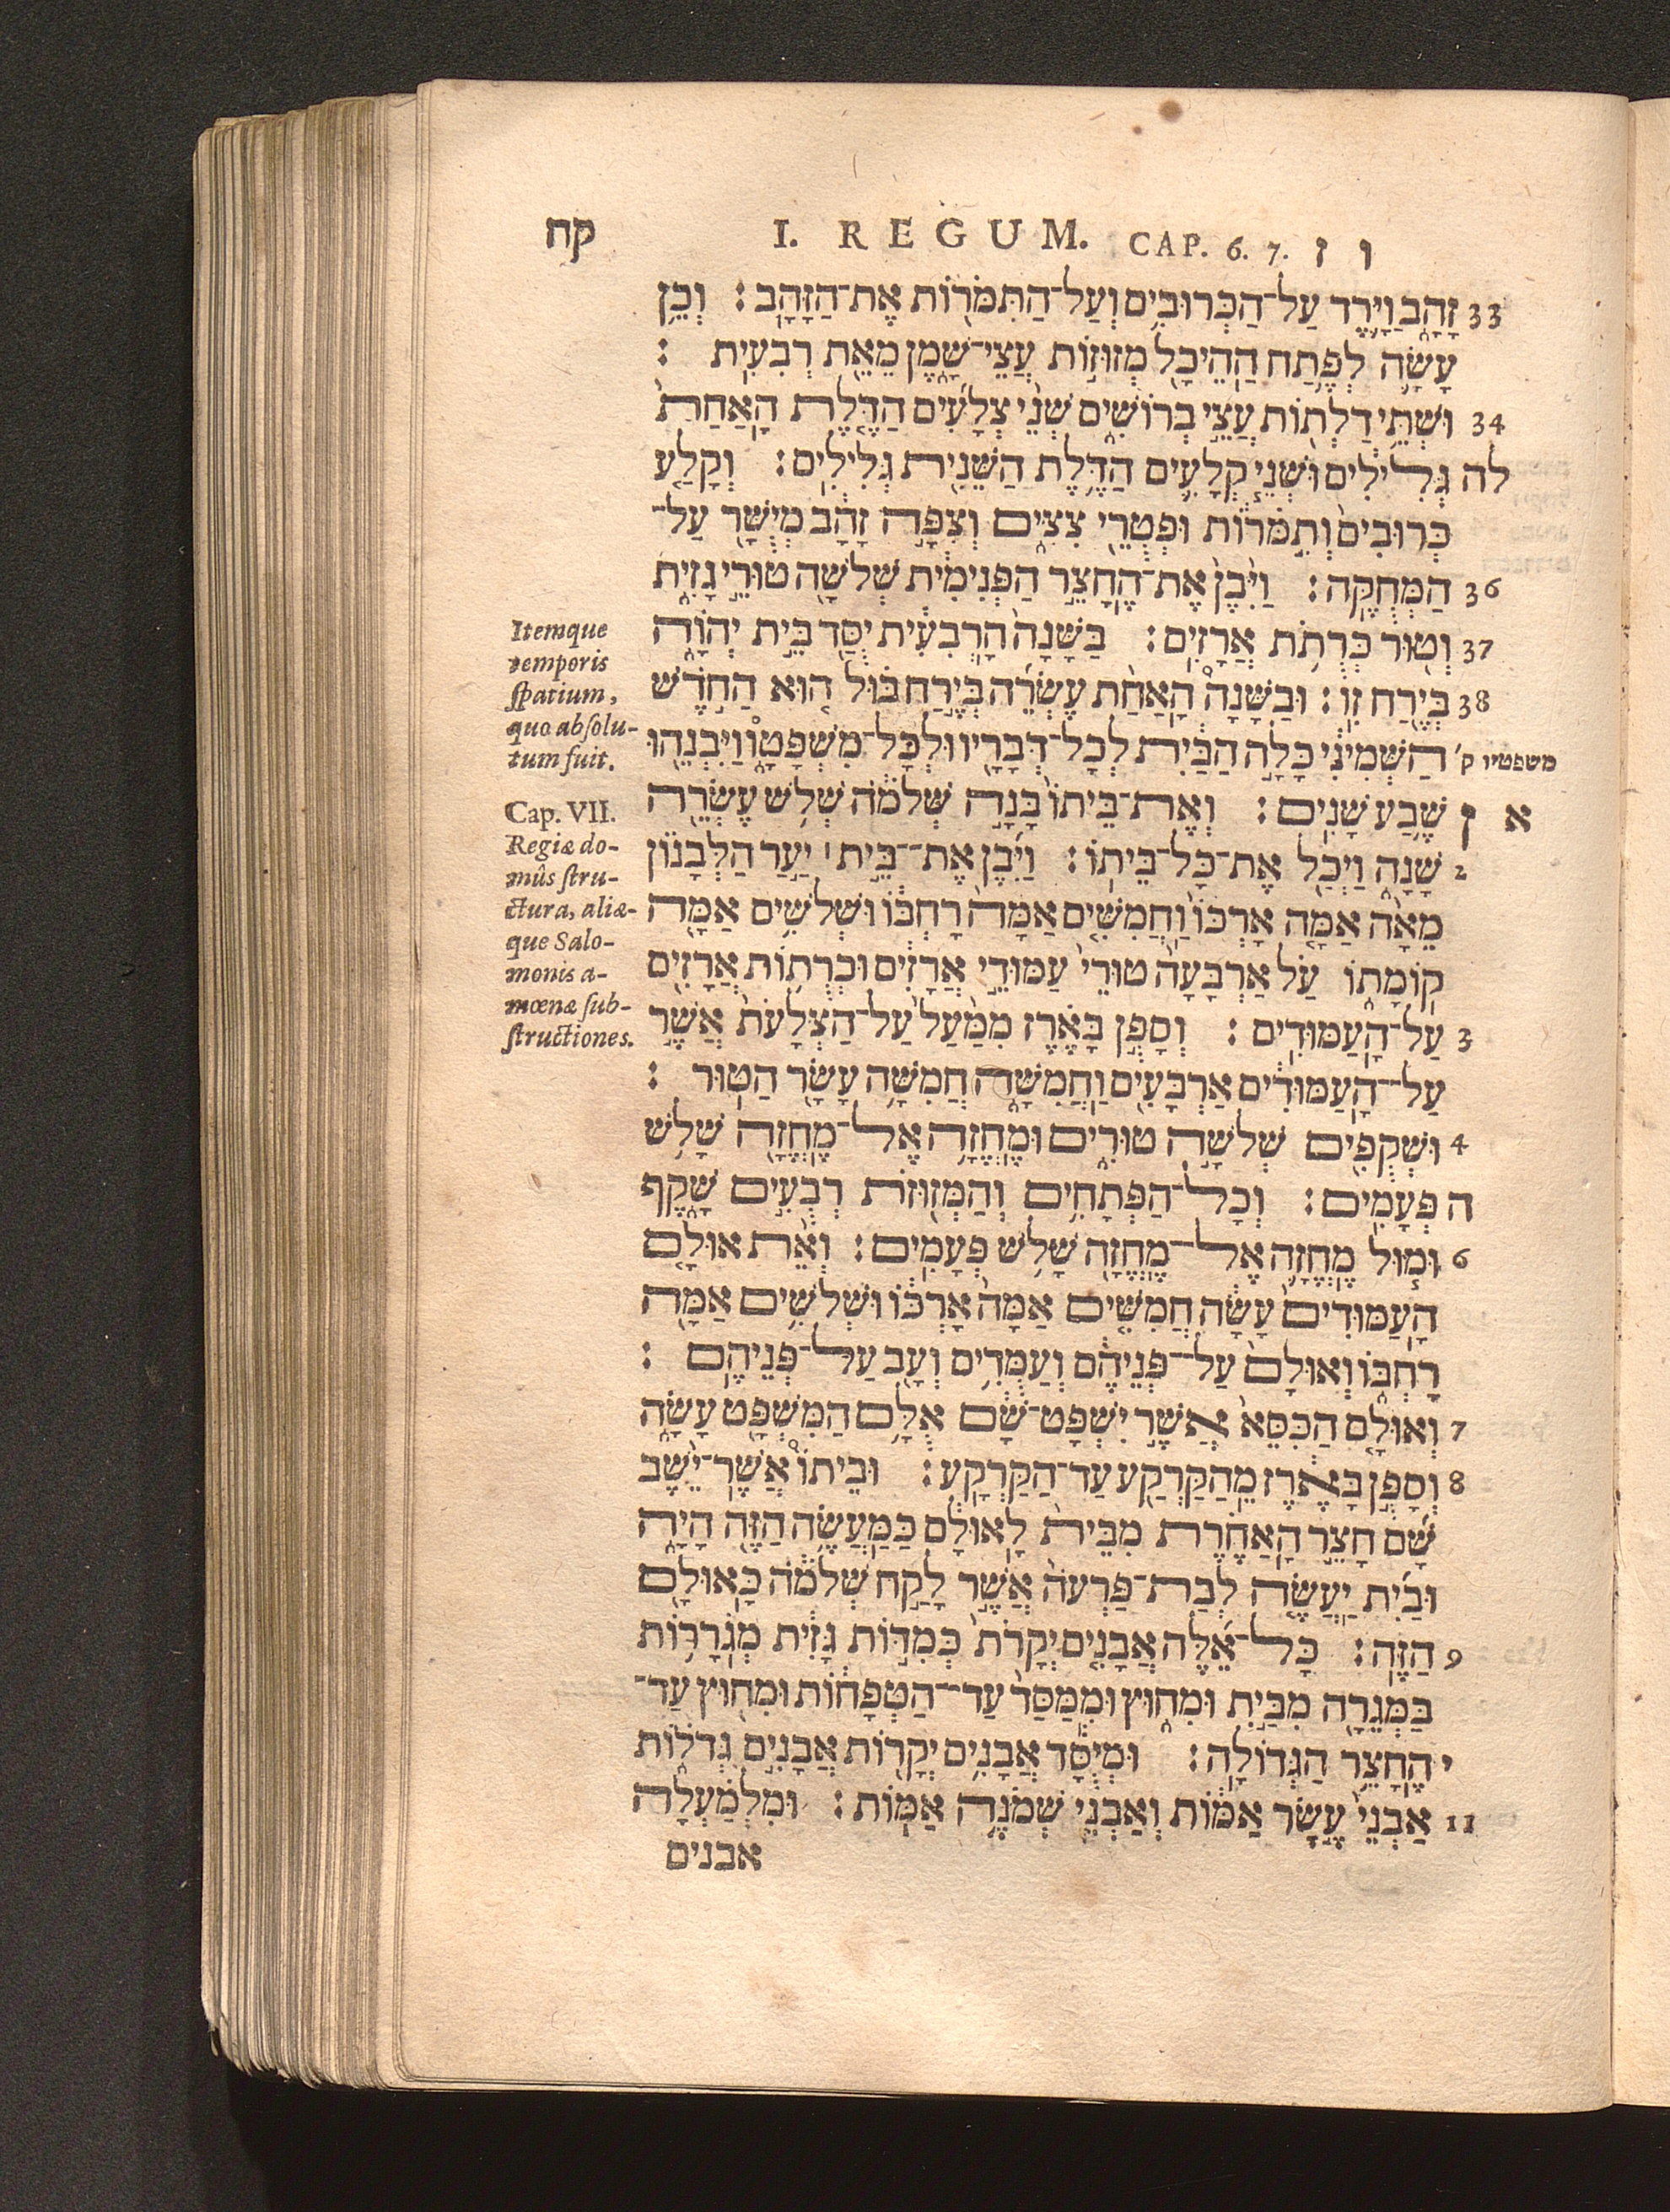 קח I. REGUM. CAP. 6. 7. ו ז
33 זָהָב וַיָּרֶד עַל־הַכְּרוּבִים וְעַל־הַתִּמֹרוֹת אֶת־הַזָּהָב׃ וְכֵן
עָשָׂה לְפֶתַח הַהֵיכָל מְזוּזוֹת עֲצֵי־שָׁמֶן מֵאֵת רְבִעִית׃
34 וּשְׁתֵּי דַלְתוֹת עֲצֵי בְרוֹשִׁים שְׁנֵי צְלָעִים הַדֶּלֶת הָאַחַת
לה גְּלִילִים וּשְׁנֵי קְלָעִים הַדֶּלֶת הַשֵּׁנִית גְּלִילִים׃ וְקָלַע
כְּרוּבִים וְתִמֹרוֹת וּפְטֻרֵי צִצִּים וְצִפָּה זָהָב מְיֻשָּׁר עַל־
36 הַמְּחֻקֶּה׃ וַיִּבֶן אֶת־הֶחָצֵר הַפְּנִימִית שְׁלֹשָׁה טוּרֵי גָזִית
37 וְטוּר כְּרֻתֹת אֲרָזִים׃ בַּשָּׁנָה הָרְבִעִית יֻסַּד בֵּית יְהוָה
38 בְּיֶרַח זִו׃ וּבַשָּׁנָה הָאַחַת עֶשְׂרֵה בְּיֶרַח בּוּל הוּא הַחֹדֶשׁ
משפטיו ק׳ הַשְּׁמִינִי כָּלָה הַבַּיִת לְכָל־דְּבָרָיו וּלְכָל־מִשְׁפָּטָו וַיִּבְנֵהוּ
א ז שֶׁבַע שָׁנִים׃ וְאֶת־בֵּיתוֹ בָּנָה שְׁלֹמֹה שְׁלֹשׁ עֶשְׂרֵה
2 שָׁנָה וַיְכַל אֶת־כָּל־בֵּיתוֹ׃ וַיִּבֶן אֶת־בֵּית ׀ יַעַר הַלְּבָנוֹן
מֵאָה אַמָּה אָרְכּוֹ וַחֲמִשִּׁים אַמָּה רָחְבּוֹ וּשְׁלֹשִׁים אַמָּה
קוֹמָתוֹ עַל אַרְבָּעָה טוּרֵי עַמּוּדֵי אֲרָזִים וּכְרֻתוֹת אֲרָזִים
3 עַל־הָעַמּוּדִים׃ וְסָפֻן בָּאֶרֶז מִמַּעַל עַל־הַצְּלָעֹת אֲשֶׁר
עַל־הָעַמּוּדִים אַרְבָּעִים וַחֲמִשָּׁה חֲמִשָּׁה עָשָׂר הַטּוּר׃
4 וּשְׁקֻפִים שְׁלֹשָׁה טוּרִים וּמֶחֱזָה אֶל־מֶחֱזָה שָׁלֹשׁ
ה פְּעָמִים׃ וְכָל־הַפְּתָחִים וְהַמְּזוּזֹת רְבֻעִים שָׁקֶף
6 וּמוּל מֶחֱזָה אֶל־מֶחֱזָה שָׁלֹשׁ פְּעָמִים׃ וְאֵת אוּלָם
הָעַמּוּדִים עָשָׂה חֲמִשִּׁים אַמָּה אָרְכּוֹ וּשְׁלֹשִׁים אַמָּה
רָחְבּוֹ וְאוּלָם עַל־פְּנֵיהֶם וְעַמֻּדִים וְעָב עַל־פְּנֵיהֶם׃
7 וְאוּלָם הַכִּסֵּא אֲשֶׁר יִשְׁפָּט־שָׁם אֻלָם הַמִּשְׁפָּט עָשָׂה
8 וְסָפֻן בָּאֶרֶז מֵהַקַּרְקַע עַד־הַקַּרְקָע׃ וּבֵיתוֹ אֲשֶׁר־יֵשֶׁב
שָׁם חָצֵר הָאַחֶרֶת מִבֵּית לָאוּלָם כַּמַּעֲשֶׂה הַזֶּה הָיָה
וּבַיִת יַעֲשֶׂה לְבַת־פַּרְעֹה אֲשֶׁר לָקַח שְׁלֹמֹה כָּאוּלָם
9 הַזֶּה׃ כָּל־אֵלֶּה אֲבָנִים יְקָרֹת כְּמִדּוֹת גָּזִית מְגֹרָרוֹת
בַּמְּגֵרָה מִבַּיִת וּמִחוּץ וּמִמַּסַּד עַד־הַטְּפָחוֹת וּמִחוּץ עַד־
י הֶחָצֵר הַגְּדוֹלָה׃ וּמְיֻסָּד אֲבָנִים יְקָרוֹת אֲבָנִים גְּדֹלוֹת
11 אַבְנֵי עֶשֶׂר אַמּוֹת וְאַבְנֵי שְׁמֹנֶה אַמּוֹת׃ וּמִלְמַעְלָה
אבנים
Itemque
temporis
spatium,
quo absolu-
tum fuit.
Cap. VII.
Regiæ do-
mûs stru-
ctura, aliæ-
que Salo-
monis a-
mœnæ sub-
structiones.